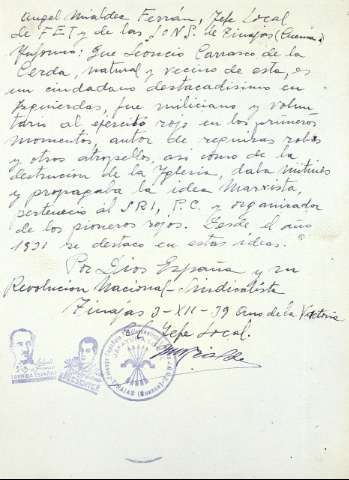 Angel Ferrán, Jefe Local
de F.E.T y de las J.O.N.S. de Tinajas (Cuenca)
Informo: Que Leoncio Carrasco de la
Cerda, natural y vecino de esta, es
un ciudadano destacadisimo en
Izquierdas, fue miliciano y volun
tario al ejercito rojo en los primeros
momentos, autor de requisas, robos
y otros atropellos, asi como de la
destrucion de la Yglesia, daba mitines
y propagaba la idea Marxista,
pertenecio al S.R.I., P.C. y organizador
de los pioneros rojos. Desde el año
1931 se destaco en estas ideas.
Por Dios España y su
Revolucion Nacional-Sindicalista
Tinajas 9-XII-39 Año de la Victoria
El Jefe Local.
ARRIBA ESPAÑA
PRESENTE
TINAJAS (Cuenca)